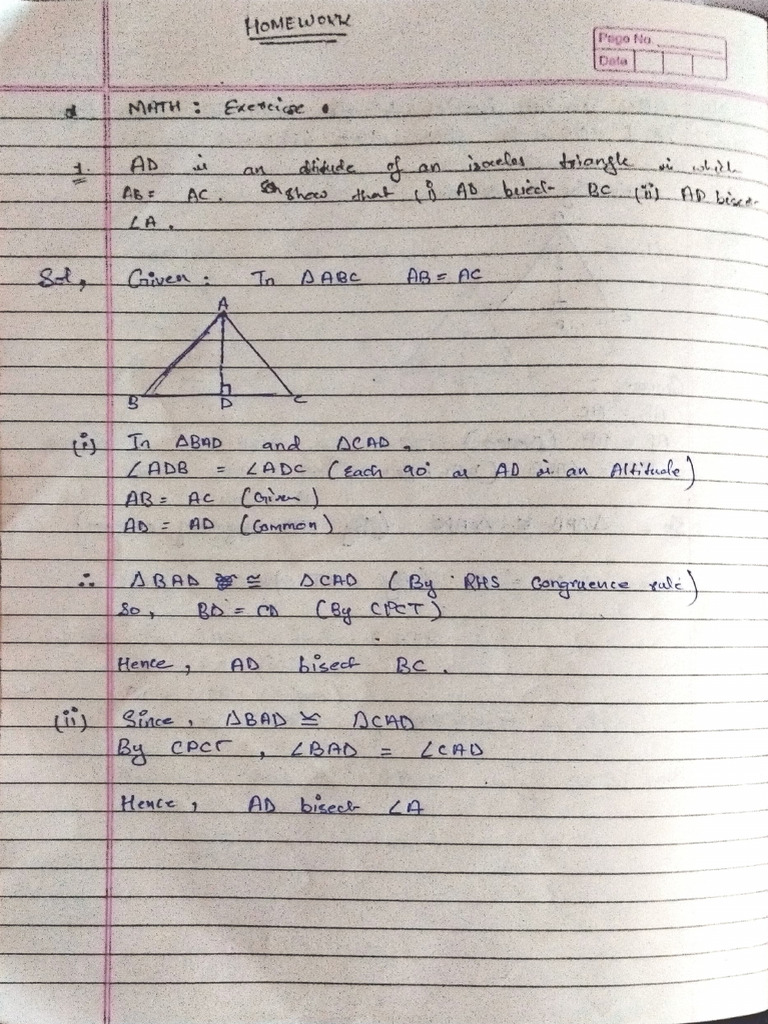 HOMEWORK
Page No.
Date
MATH : Exercise .
1. AD is an altitude of an isoceles triangle in which
AB = AC. Show that (i) AD bisect BC (ii) AD bisect
∠A.
Sol, Given : In ΔABC AB = AC
A
B D C
(i) In ΔBAD and ΔCAD,
∠ADB = ∠ADC (Each 90° as AD is an Altitude)
AB = AC (Given)
AD = AD (Common)
∴ ΔBAD ≅ ΔCAD (By RHS Congruence rule)
So, BD = CD (By CPCT)
Hence, AD bisect BC.
(ii) Since, ΔBAD ≅ ΔCAD
By CPCT, ∠BAD = ∠CAD
Hence, AD bisect ∠A